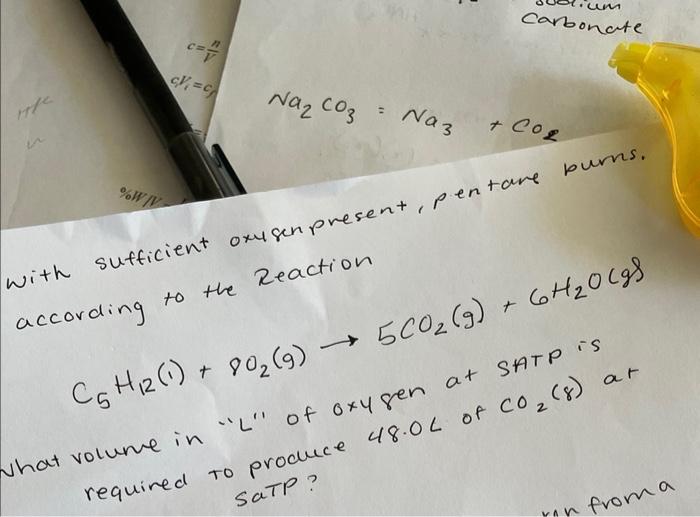 carbonate
c=n/V
Na2 CO3 = Na3 + CO2
%W/V
with sufficient oxygen present, pentane burns.
according to the Reaction
C5H12(l) + 8O2(g) → 5CO2(g) + 6H2O(g)
What volume in "L" of oxygen at SATP is
required to produce 48.0L of CO2(g) at
SATP?
from a